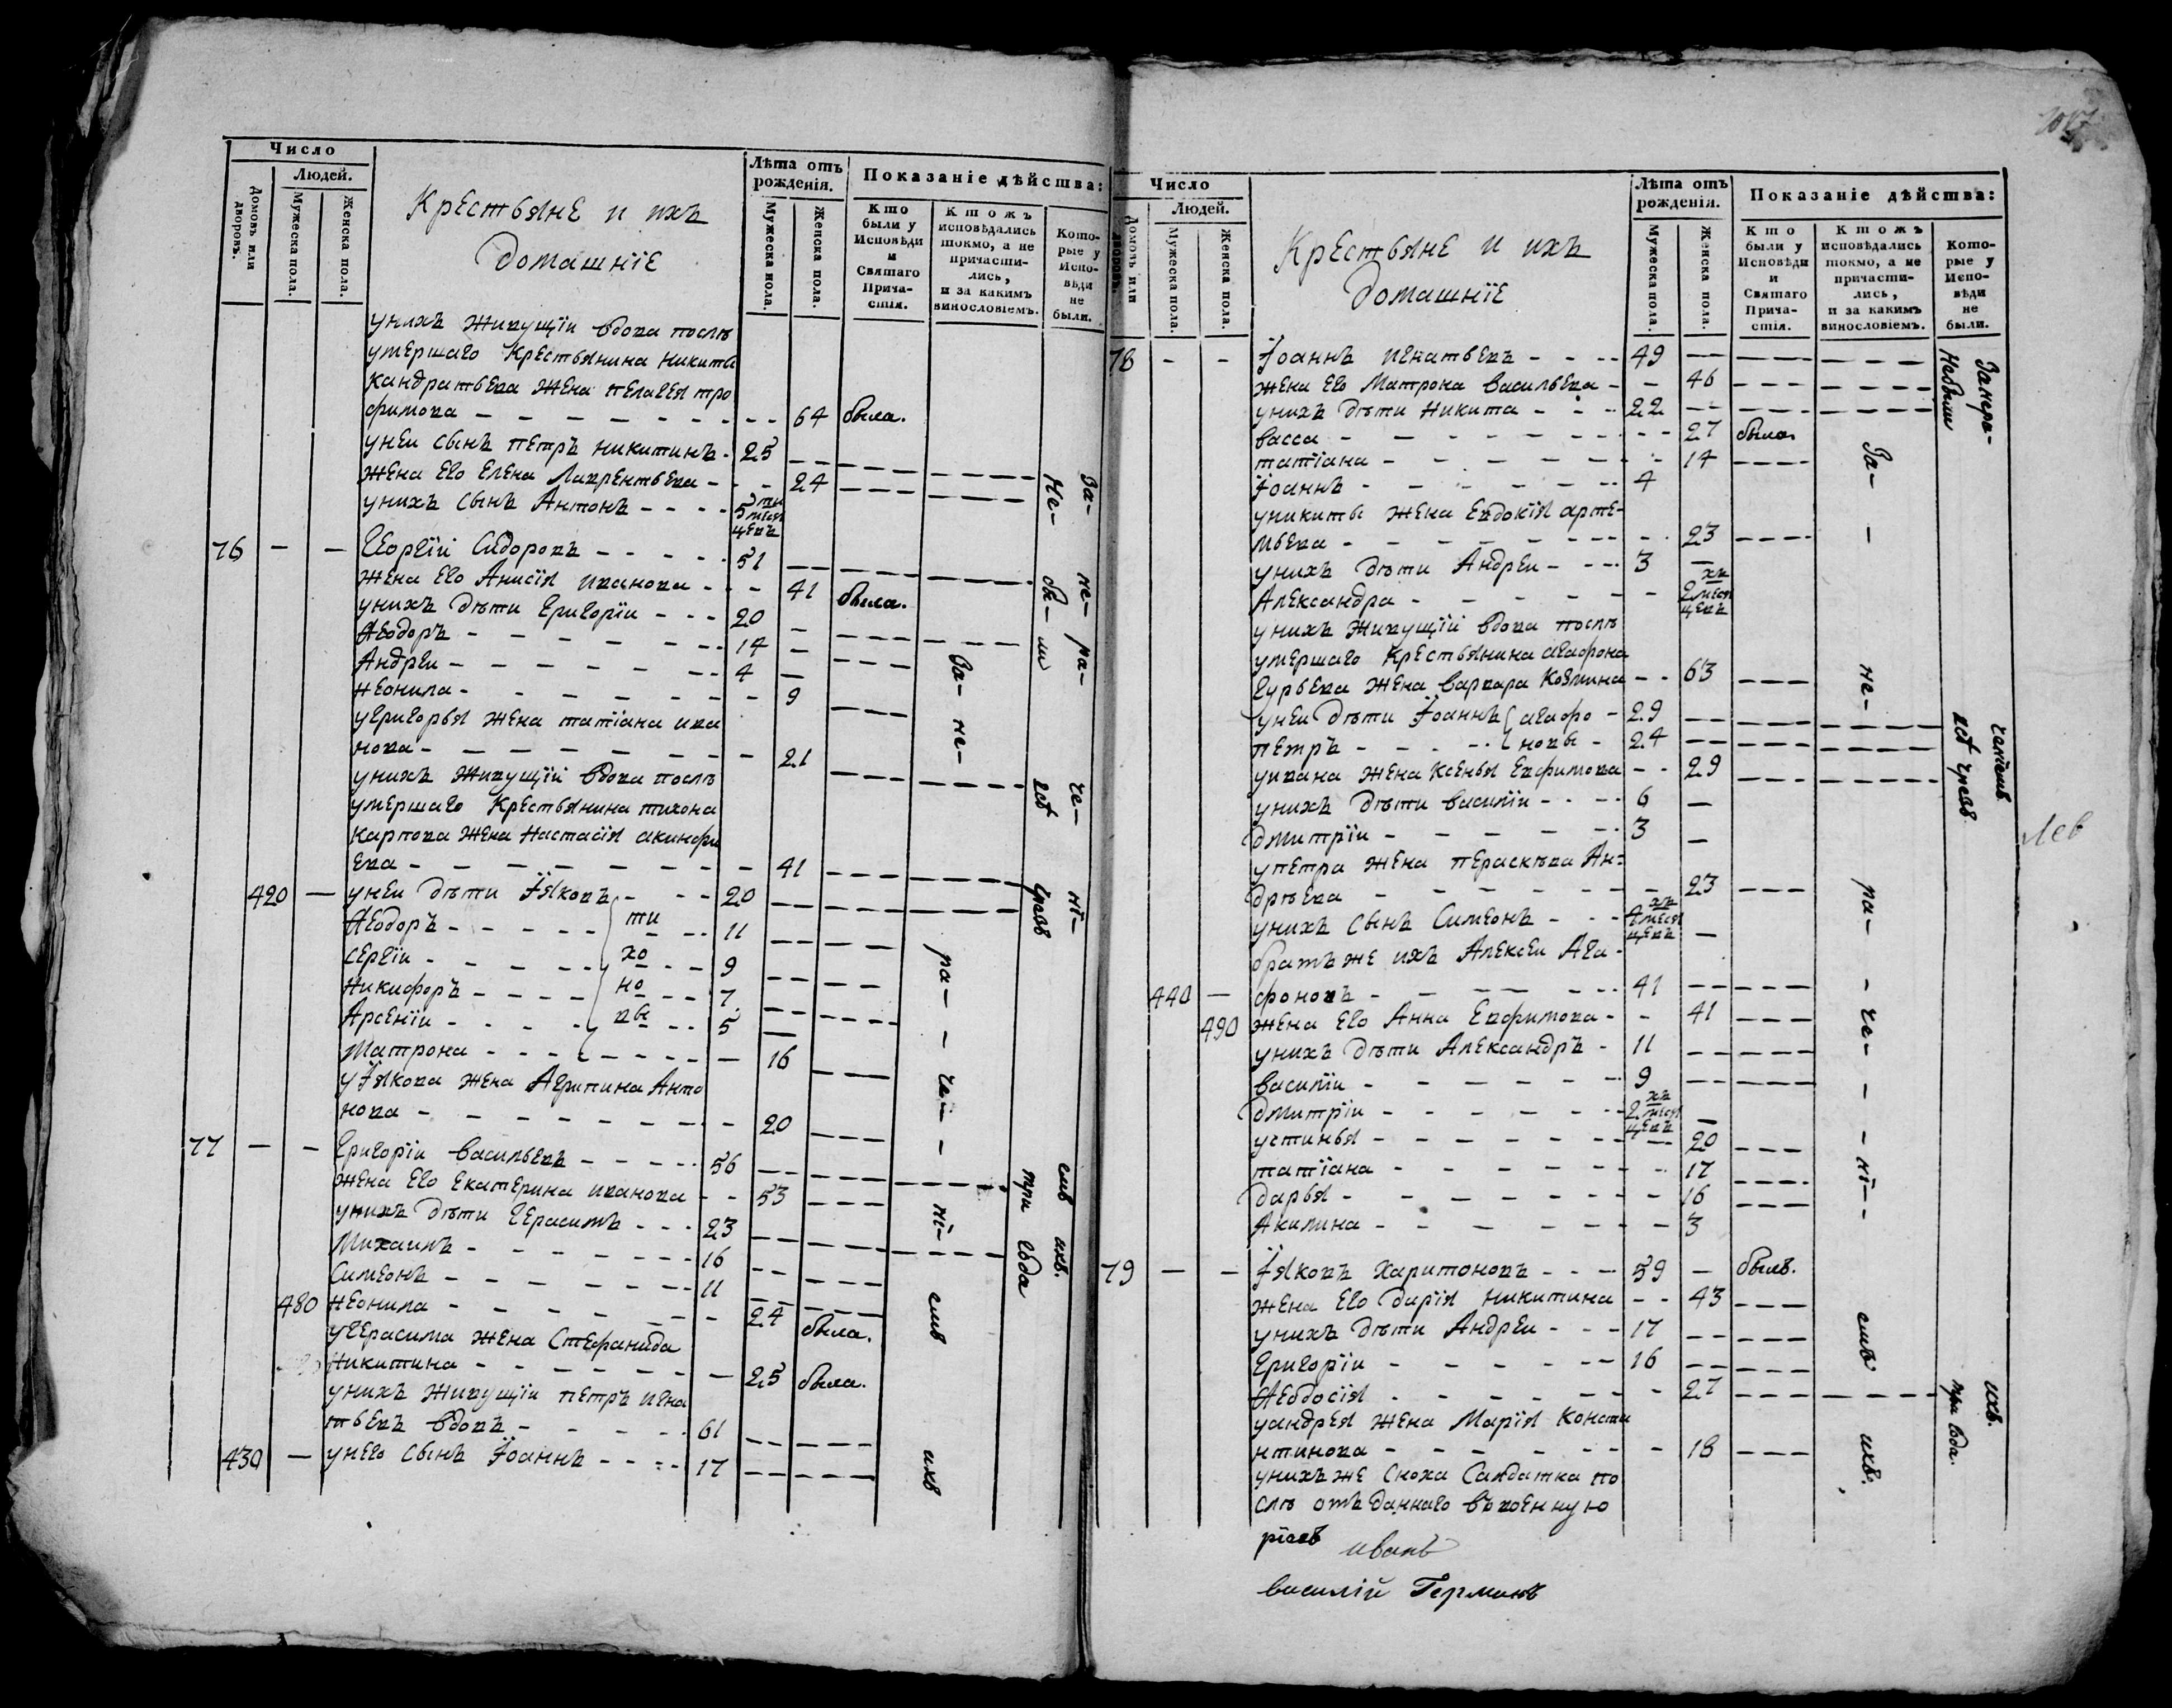 Число
Людей.
Домовъ или дворовъ.
Мужеска пола.
Женска пола.
Крестьяне и ихъ
домашніе
Лѣта отъ рожденія.
Мужеска пола.
Женска пола.
Показаніе дѣйства:
Кто были у Исповѣди и Святаго Причастія.
Ктожъ исповѣдались токмо, а не причастились, и за какимъ винословіемъ.
Которые у Исповѣди не были.
унихъ живущїи вдова послѣ
умершаго крестьянина никиты
кандратьева жена пелагея тро
фимова - - 64 была.
унеи сынъ петръ никитинъ - 25
жена его елена лаврентьева - - 24
унихъ сынъ Антонъ - - 5ти месяцевъ
76 - - Георгїй Сидоровъ - - 51
жена его Анисїя иванова - - 41 была.
унихъ дѣти григорїи - - 20
Ѳеодоръ - - 14
Андреи - - 4
Неонила - - 9
угригорья жена татїана ива
нова - - 21
унихъ живущїй вдова послѣ
умершаго крестьянина тихона
карпова жена настасїя акинфи
ева - - 41
420 - унеи дѣти Їяковъ - - 20
Ѳеодоръ - - ти - - 11
сергїи - - хо - - 9
никифоръ - - но - - 7
Арсенїи - - вы - - 5
матрона - - 16
уЇякова жена Агрипина Анто
нова - - 20
77 - - григорїи васильевъ - - 56
жена его екатерина иванова - - 53
унихъ дѣти герасимъ - - 23
михаилъ - - 16
Симеонъ - - 11
480 неонила - - 24 была.
угерасима жена Стефанида
никитина - - 25 была.
унихъ живущїи петръ игна
тьевъ вдовъ - - 61
430 - унего сынъ Їоаннъ - - 17
За- не- ра- че- нї- емъ ихъ
За- не- ра- че- нї- емъ ихъ.
Не- бы- ли всѣ чрезъ три года
Число
Людей.
Домовъ или дворовъ.
Мужеска пола.
Женска пола.
Крестьяне и ихъ
домашнїе
Лѣта отъ рожденія.
Мужеска пола.
Женска пола.
Показаніе дѣйства:
Кто были у Исповѣди и Святаго Причастія.
Ктожъ исповѣдались токмо, а не причастились, и за какимъ винословіемъ.
Которые у Исповѣди не были.
78 - - Їоаннъ игнатьевъ - - 49
жена его матрона васильева - - 46
унихъ дѣти никита - - 22
васса - - 27 была.
татїана - - 14
Їоаннъ - - 4
уникиты жена евдокїя арте-
мьева - - 23
унихъ дѣти Андреи - - 3
Александра - - 2хъ месяцевъ
унихъ живущїй вдова послѣ
умершаго крестьянина агафона
гурьева жена варвара козмина - - 63
унеи дѣти Їоаннъ агафо - 29
петръ - - новы - 24
уивана жена ксенья евфимова - - 29
унихъ дѣти василїи - - 6
дмитрїи - - 3
упетра жена пераскѣва Ан-
дрѣева - - 23
унихъ сынъ Симеонъ - - 4хъ месяцевъ
братъ же ихъ Алексеи Ага-
440 - фоновъ - - 41
490 жена его Анна евфимова - - 41
унихъ дѣти Александръ - 11
василїи - - 9
дмитрїи - - 2хъ месяцевъ
устинья - - 20
татїана - - 17
дарья - - 16
Акилина - - 3
79 - - Їяковъ харитоновъ - - 59 - былъ.
жена его дарїя никитина - - 43
унихъ дѣти Андреи - - 17
григорїи - - 16
Ѳеодосїя - - 27
уандрея жена марїя конста
нтинова - - 18
унихъ же сноха салдатка по
слѣ отъ даннаго въ военную
иванъ
василій Германъ
За- не- ра- че- нї- емъ ихъ.
Занера- ченїемъ ихъ.
Небыли всѣ чрезъ три года.